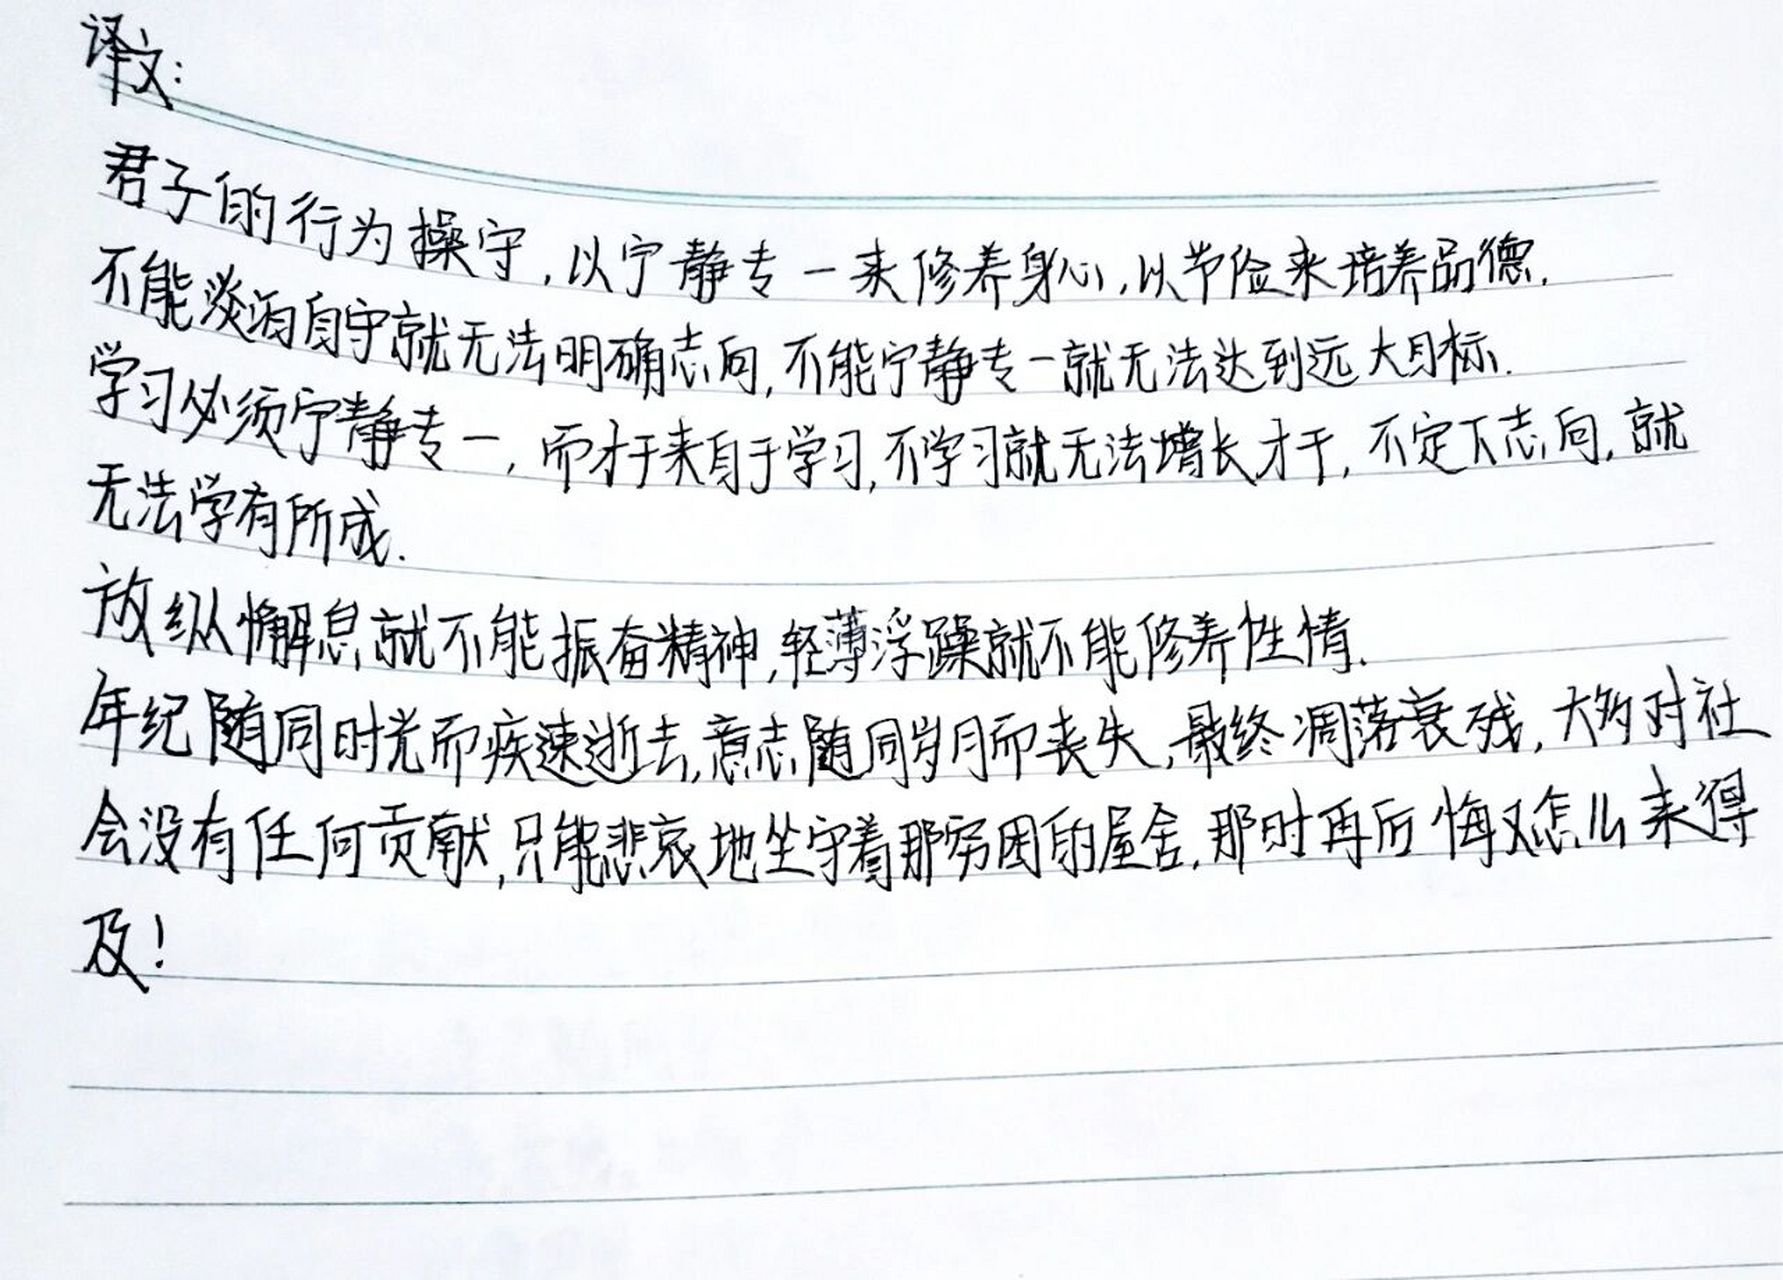 译文:
君子的行为操守,以宁静专一来修养身心,以节俭来培养品德.
不能淡泊自守就无法明确志向,不能宁静专一就无法达到远大目标.
学习必须宁静专一,而才干来自于学习,不学习就无法增长才干,不定下志向,就
无法学有所成.
放纵懈怠就不能振奋精神,轻薄浮躁就不能修养性情.
年纪随同时光而疾速逝去,意志随同岁月而丧失,最终凋落衰残,大多对社
会没有任何贡献,只能悲哀地坐守着那穷困的屋舍,那时再后悔又怎么来得
及!